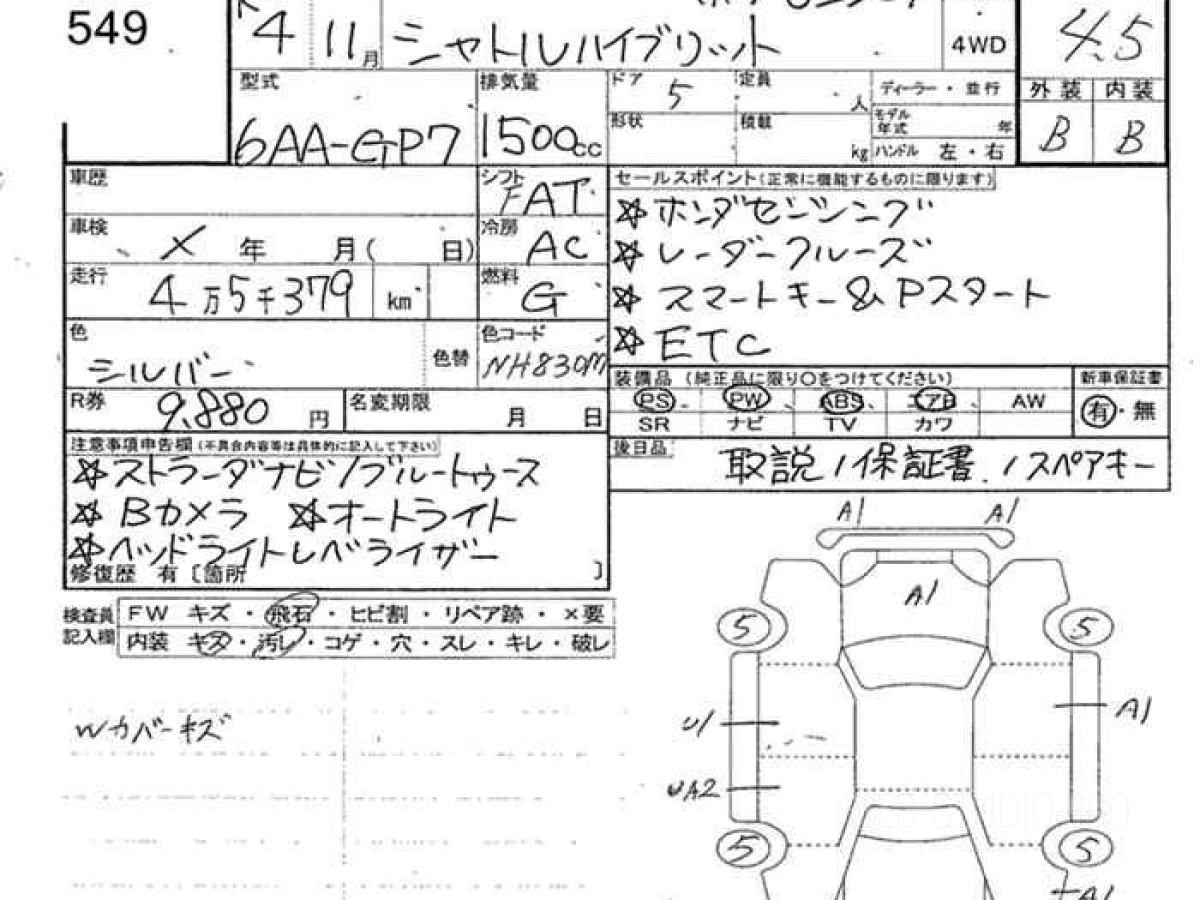 549
4 11月
シャトルハイブリット
4WD
4.5
型式
6AA-GP7
排気量
1500cc
ドア 5
定員 人
形状
積載 kg
ディーラー・並行
モデル年式 年
ハンドル 左・右
外装 内装
B B
車歴
シフト FAT
車検 X 年 月( 日)
冷房 AC
走行 4万5千379 km
燃料 G
色 シルバー 色替
色コード NH830M
R券 9,880 円
名変期限 月 日
セールスポイント(正常に機能するものに限ります)
☆ホンダセンシング
☆レーダークルーズ
☆スマートキー&Pスタート
☆ETC
装備品 (純正品に限り○をつけてください)
PS PW ABS エアB AW
SR ナビ TV カワ
新車保証書
有・無
後日品 取説/保証書/スペアキー
注意事項申告欄(不具合内容等は具体的に記入して下さい)
☆ストラーダナビ/ブルートゥース
☆Bカメラ ☆オートライト
☆ヘッドライトレベライザー
修復歴 有〔箇所 〕
検査員記入欄
FW キズ・飛石・ヒビ割・リペア跡・×要
内装 キズ・汚レ・コゲ・穴・スレ・キレ・破レ
Wカバーキズ
A1 A1
A1
5 5
U1 A1
UA2
5 5
A1